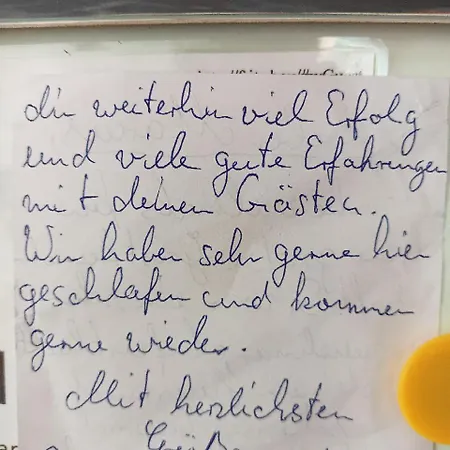 dir weiterhin viel Erfolg
und viele gute Erfahrungen
mit deinen Gästen.
Wir haben sehr gerne hier
geschlafen und kommen
gerne wieder.
Mit herzlichsten
Grüßen